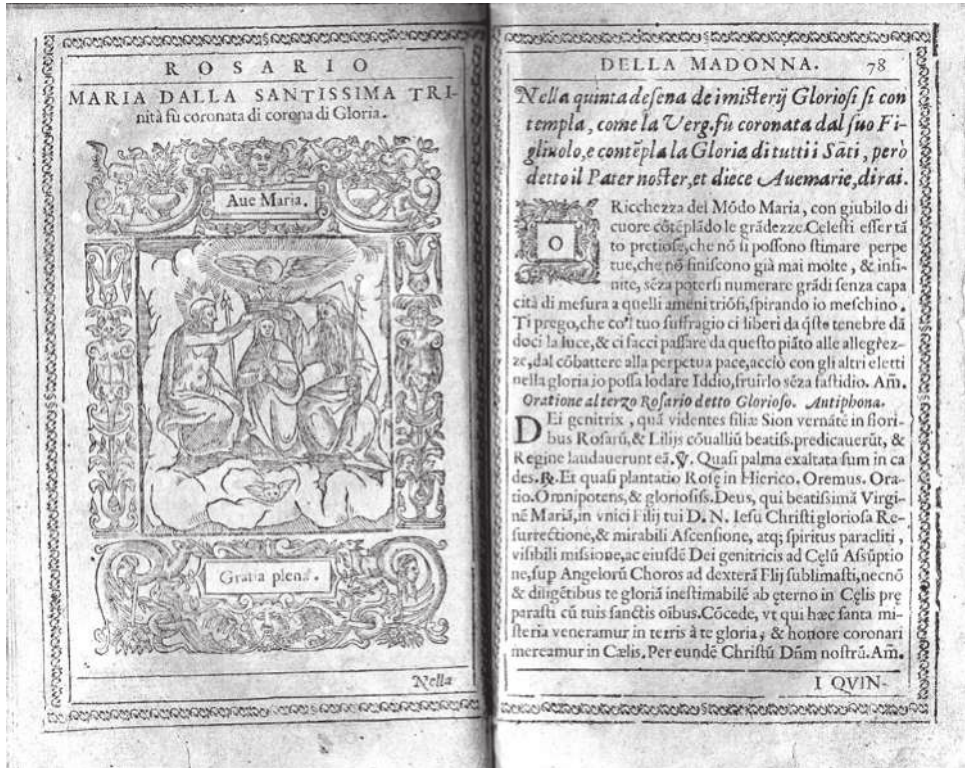 ROSARIO
MARIA DALLA SANTISSIMA TRI-
nità fù coronata di corona di Gloria.
Aue Maria.
Gratia plena.
Nella
DELLA MADONNA. 78
Nella quinta desena de i misterij Gloriosi si con
templa, come la Verg. fù coronata dal suo Fi-
gliuolo, e contẽpla la Gloria di tutti i Sãti, però
detto il Pater noster, et diece Auemarie, dirai.
O Ricchezza del Mõdo Maria, con giubilo di
cuore cõtẽplãdo le grãdezze Celesti esser tã
to pretiose, che nõ si possono stimare perpe
tue, che nõ finiscono già mai molte, & infi-
nite, sẽza potersi numerare grãdi senza capa
cità di mesura a quelli ameni triõfi, spirando io meschino.
Ti prego, che co'l tuo suffragio ci liberi da q̃ste tenebre dã
doci la luce, & ci facci passare da questo piãto alle allegrez-
ze, dal cõbattere alla perpetua pace, acciò con gli altri eletti
nella gloria io possa lodare Iddio, fruirlo sẽza fastidio. Am̃.
Oratione al terzo Rosario detto Glorioso. Antiphona.
DEi genitrix, quã videntes filiæ Sion vernãtẽ in flori-
bus Rosarũ, & Lilijs cõualliũ beatiss. predicauerũt, &
Regine laudauerunt eã. ℣. Quasi palma exaltata sum in ca
des. ℟. Et quasi plantatio Rosę in Hierico. Oremus. Ora-
tio. Omnipotens, & gloriosiss. Deus, qui beatissimã Virgi-
nẽ Mariã, in vnici Filij tui D. N. Iesu Christi gloriosa Re-
surrectione, & mirabili Ascensione, atq; spiritus paracliti,
visibili missione, ac eiusdẽ Dei genitricis ad Cęlũ Assũptio
ne, sup Angelorũ Choros ad dexterã Flij sublimasti, necnõ
& diligẽtibus te gloriã inestimabilẽ ab ęterno in Cęlis prę
parasti cũ tuis sanctis oĩbus. Cõcede, vt qui hæc santa mi-
steria veneramur in terris à te gloria, & honore coronari
mereamur in Cælis. Per eundẽ Christũ Dñm nostrũ. Am̃.
I QVIN-